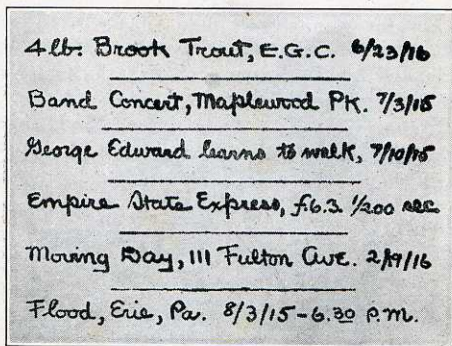 4 lb. Brook Trout, E.G.C. 6/23/16
Band Concert, Maplewood Pk. 7/3/15
George Edward learns to walk, 7/10/15
Empire State Express, f.6.3. 1/200 sec
Moving Day, 111 Fulton Ave. 2/19/16
Flood, Erie, Pa. 8/3/15 - 6.30 P.M.